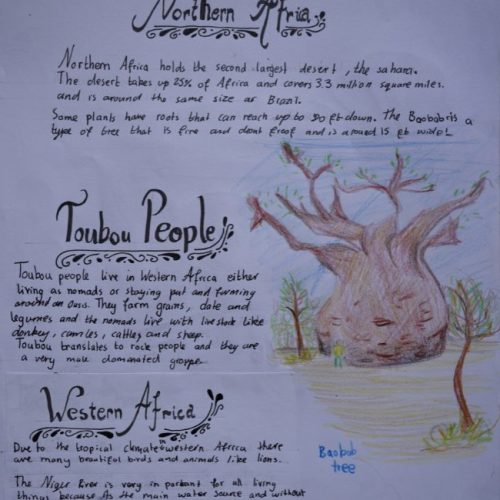 Northern Africa
Northern Africa holds the second largest desert, the sahara.
The desert takes up 25% of Africa and covers 3.3 million square miles.
and is around the same size as Brazil.
Some plants have roots that can reach up to ft down. The Baobab is a
type of tree that is fire and drout proof and is around 15 ft wide!
Toubou People
Toubou people live in Western Africa either
living as nomads or staying put and farming
around an Oasis. They farm grains, date and
legumes and the nomads live with livestock like
donkey, camles, cattles and sheep.
Toubou translates to rock people and they are
a very male domonated groupe.
Western Africa
Due to the tropical climate in western Africa there
are many beautiful birds and animals like lions.
Baobab
tree
The Niger River is very in portant for all living
things because its the main water source and without